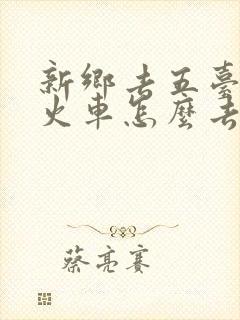 新鄉去五臺
火車怎麼去
蔡亮賽